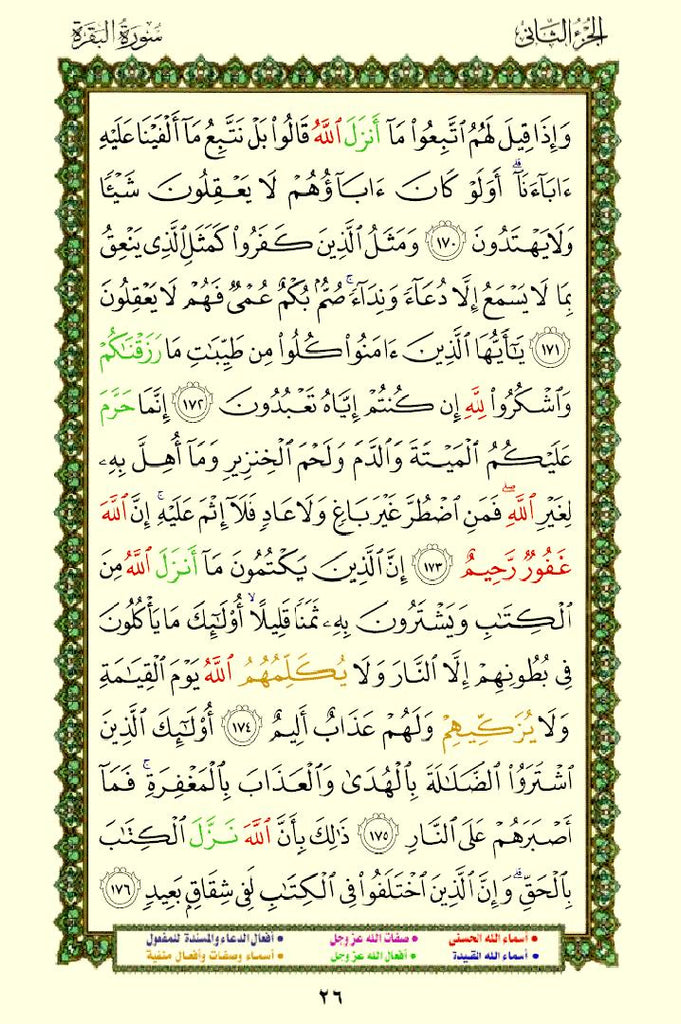 الجزء الثاني
سورة البقرة
وَإِذَا قِيلَ لَهُمُ ٱتَّبِعُوا۟ مَآ أَنزَلَ ٱللَّهُ قَالُوا۟ بَلْ نَتَّبِعُ مَآ أَلْفَيْنَا عَلَيْهِ
ءَابَآءَنَآ ۗ أَوَلَوْ كَانَ ءَابَآؤُهُمْ لَا يَعْقِلُونَ شَيْـًٔا
وَلَا يَهْتَدُونَ ١٧٠ وَمَثَلُ ٱلَّذِينَ كَفَرُوا۟ كَمَثَلِ ٱلَّذِى يَنْعِقُ
بِمَا لَا يَسْمَعُ إِلَّا دُعَآءً وَنِدَآءً ۚ صُمٌّۢ بُكْمٌ عُمْىٌ فَهُمْ لَا يَعْقِلُونَ
١٧١ يَـٰٓأَيُّهَا ٱلَّذِينَ ءَامَنُوا۟ كُلُوا۟ مِن طَيِّبَـٰتِ مَا رَزَقْنَـٰكُمْ
وَٱشْكُرُوا۟ لِلَّهِ إِن كُنتُمْ إِيَّاهُ تَعْبُدُونَ ١٧٢ إِنَّمَا حَرَّمَ
عَلَيْكُمُ ٱلْمَيْتَةَ وَٱلدَّمَ وَلَحْمَ ٱلْخِنزِيرِ وَمَآ أُهِلَّ بِهِۦ
لِغَيْرِ ٱللَّهِ ۖ فَمَنِ ٱضْطُرَّ غَيْرَ بَاغٍ وَلَا عَادٍ فَلَآ إِثْمَ عَلَيْهِ ۚ إِنَّ ٱللَّهَ
غَفُورٌ رَّحِيمٌ ١٧٣ إِنَّ ٱلَّذِينَ يَكْتُمُونَ مَآ أَنزَلَ ٱللَّهُ مِنَ
ٱلْكِتَـٰبِ وَيَشْتَرُونَ بِهِۦ ثَمَنًا قَلِيلًا ۙ أُو۟لَـٰٓئِكَ مَا يَأْكُلُونَ
فِى بُطُونِهِمْ إِلَّا ٱلنَّارَ وَلَا يُكَلِّمُهُمُ ٱللَّهُ يَوْمَ ٱلْقِيَـٰمَةِ
وَلَا يُزَكِّيهِمْ وَلَهُمْ عَذَابٌ أَلِيمٌ ١٧٤ أُو۟لَـٰٓئِكَ ٱلَّذِينَ
ٱشْتَرَوُا۟ ٱلضَّلَـٰلَةَ بِٱلْهُدَىٰ وَٱلْعَذَابَ بِٱلْمَغْفِرَةِ ۚ فَمَآ
أَصْبَرَهُمْ عَلَى ٱلنَّارِ ١٧٥ ذَٰلِكَ بِأَنَّ ٱللَّهَ نَزَّلَ ٱلْكِتَـٰبَ
بِٱلْحَقِّ ۗ وَإِنَّ ٱلَّذِينَ ٱخْتَلَفُوا۟ فِى ٱلْكِتَـٰبِ لَفِى شِقَاقٍۭ بَعِيدٍ ١٧٦
• أسماء الله الحسنى • صفات الله عز وجل • أفعال الدعاء والمسندة للمفعول
• أسماء الله المقيدة • أفعال الله عز وجل • أسماء وصفات وأفعال منفية
٢٦